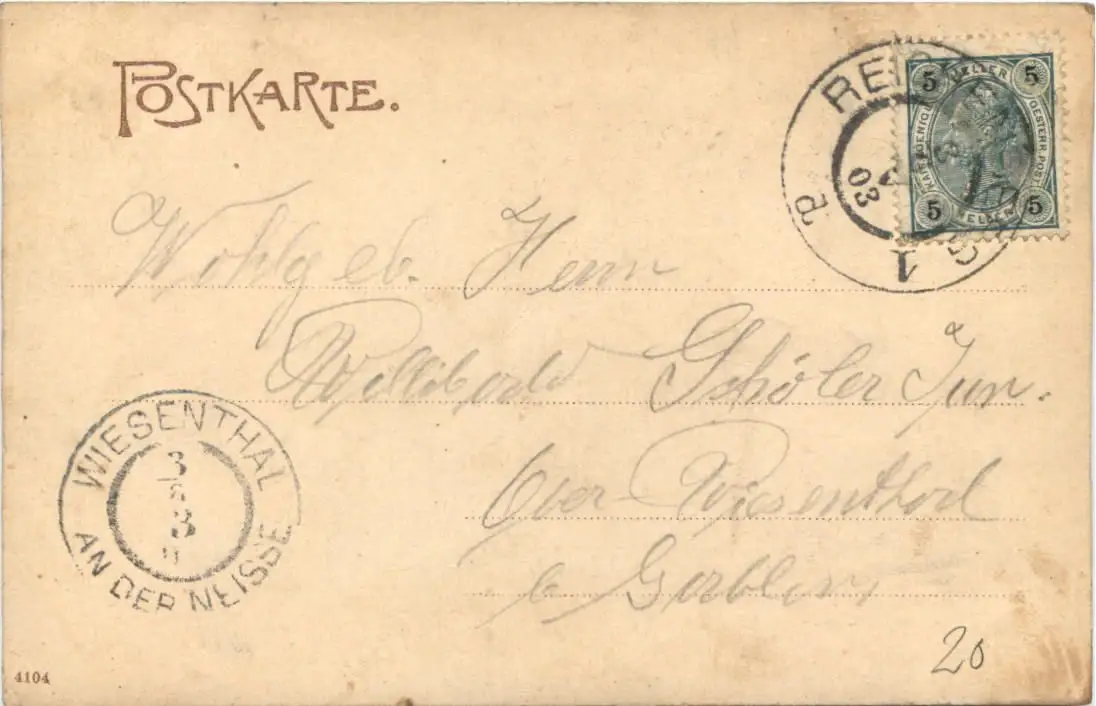 POSTKARTE.
REICHENBERG
1
a
03
5 HELLER 5
OESTERR. POST
5 HELLER 5
Wohlgeb. Herrn
Willibald Schöler Jun.
Ober Wiesenthal
b Gablonz
WIESENTHAL
3
3
AN DER NEISSE
20
4104